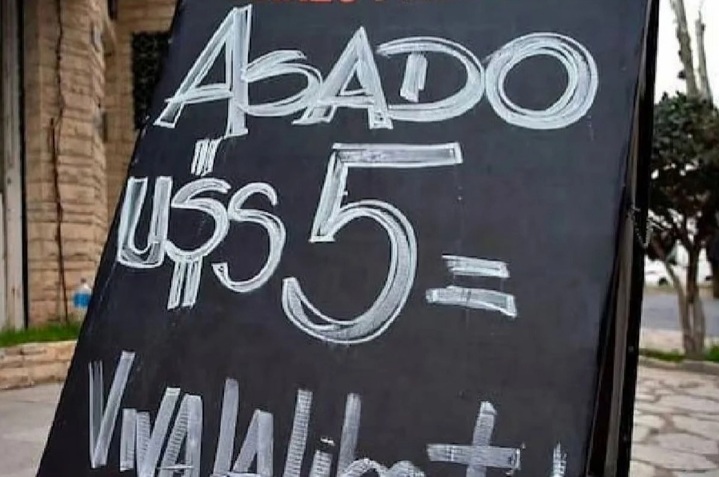 ASADO
U$S 5=
VIVA LA